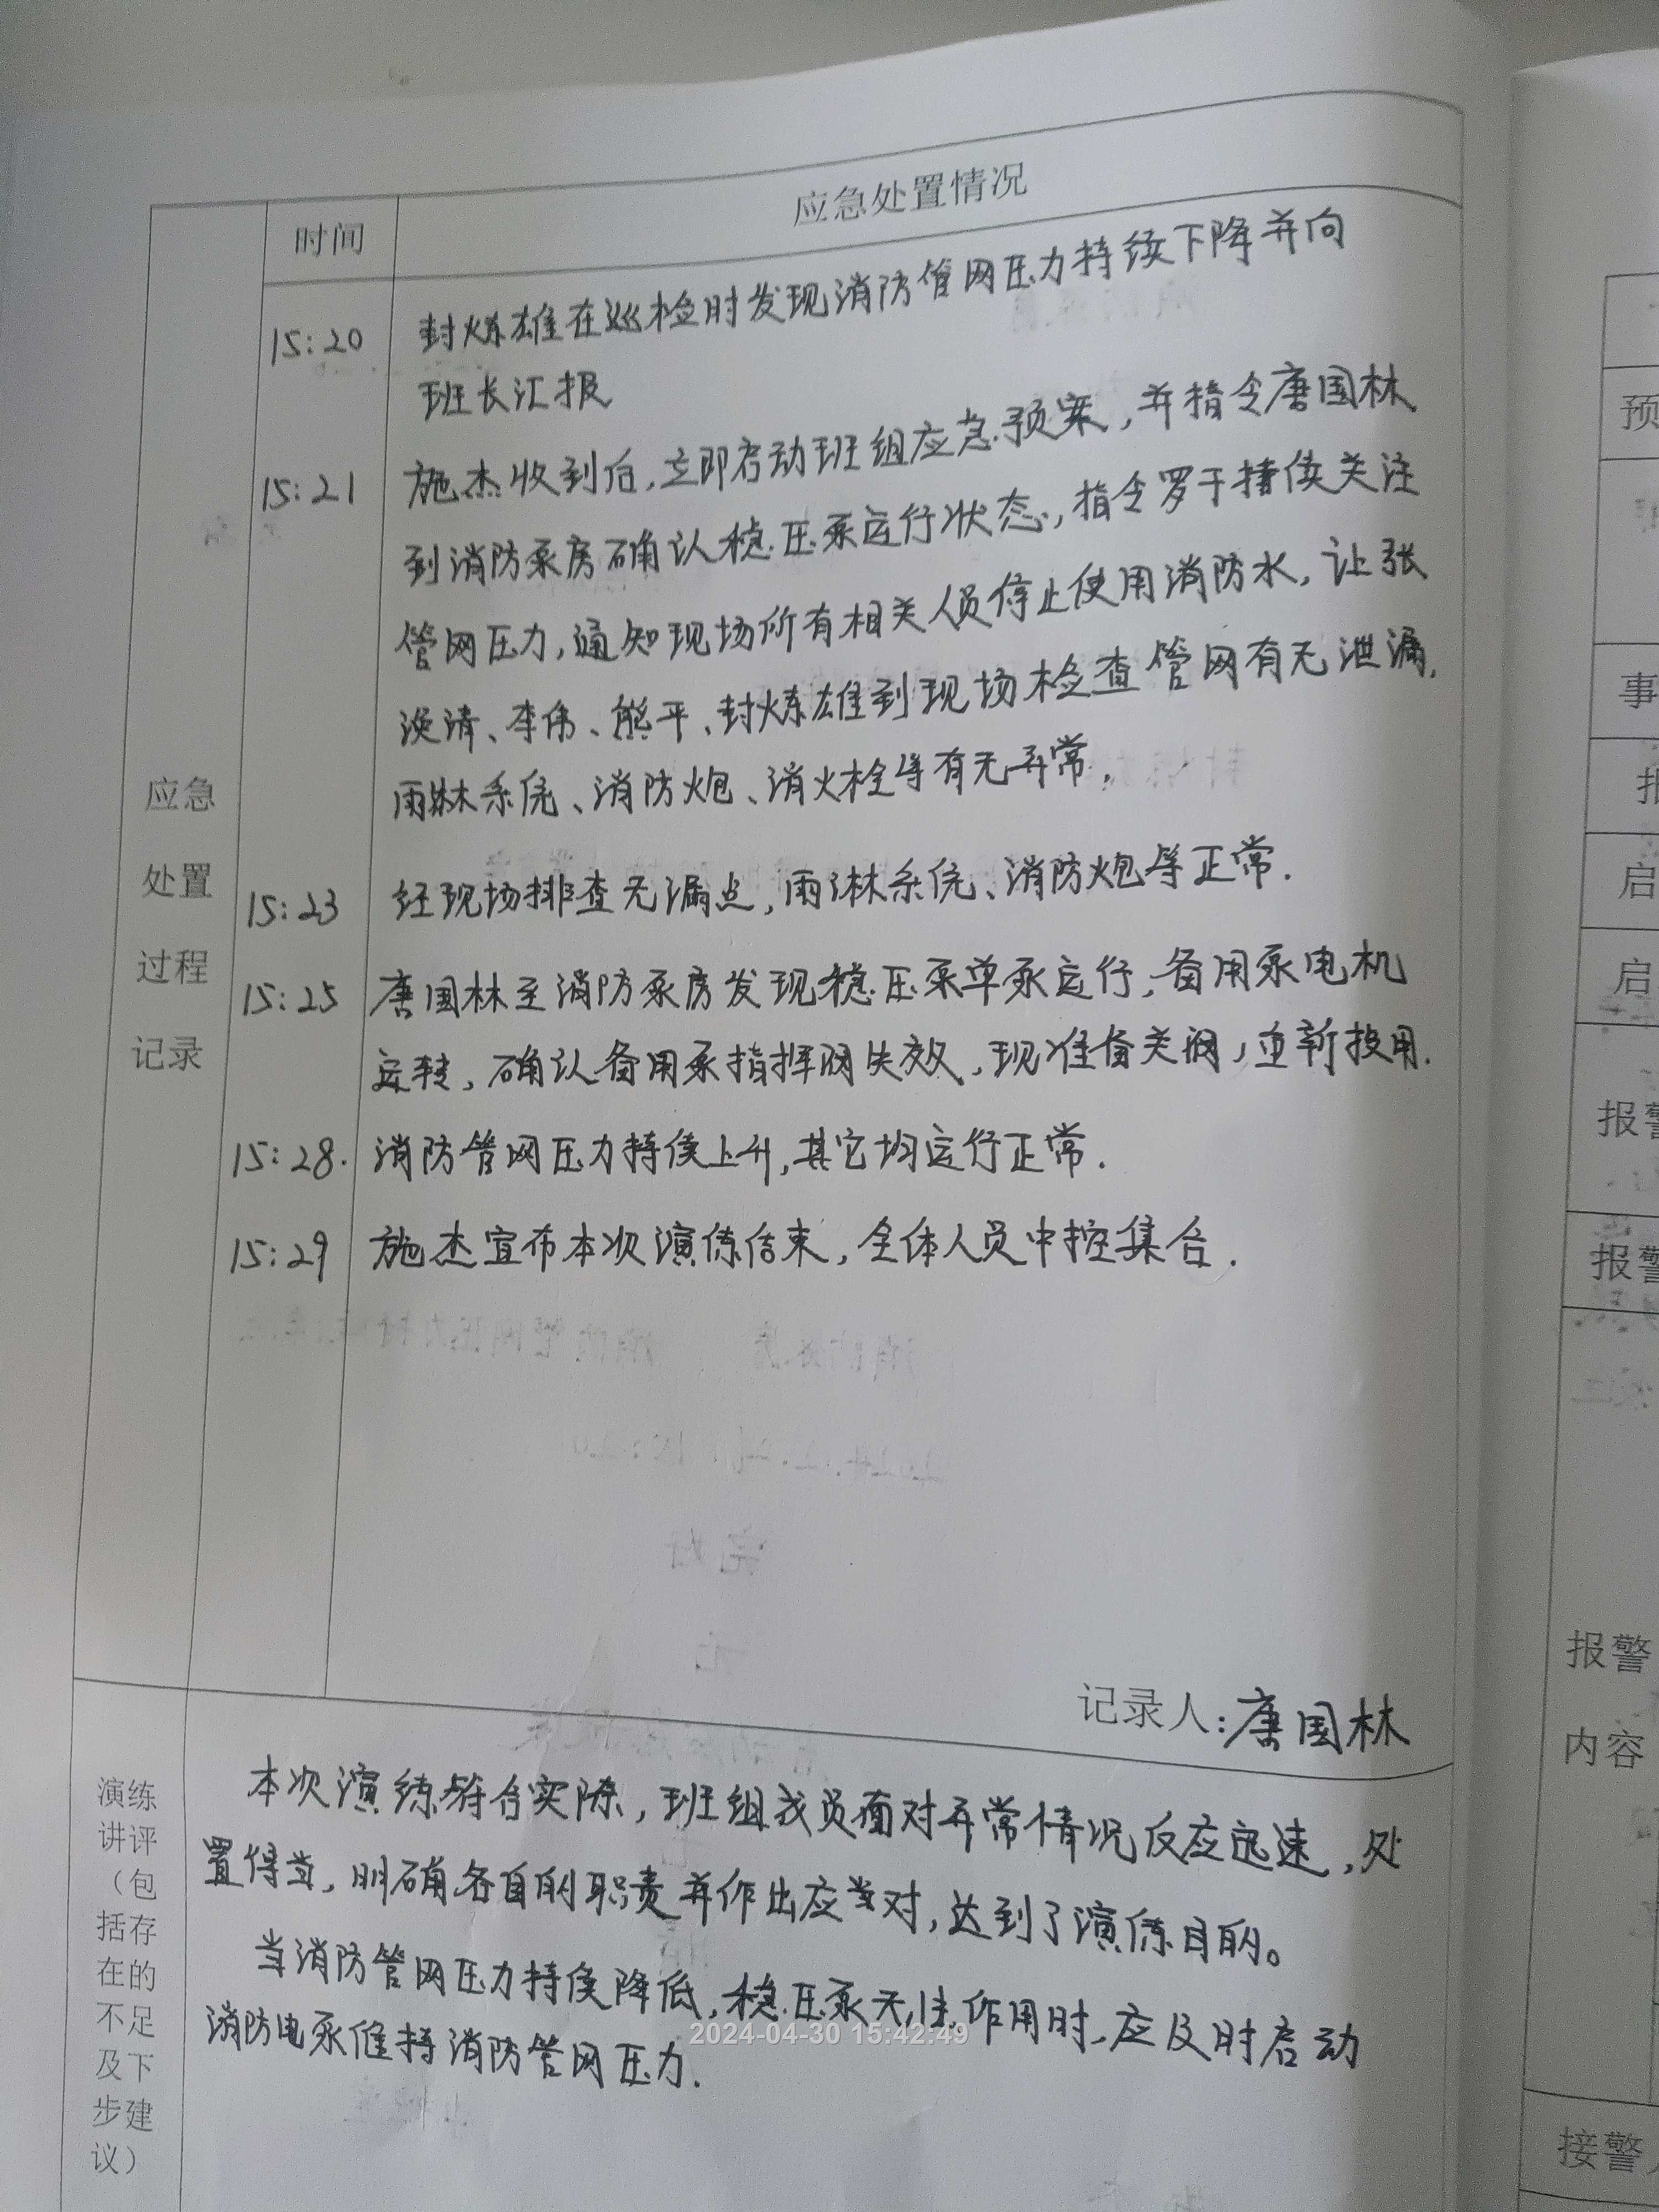 时间 应急处置情况
15:20 封炼雄在巡检时发现消防管网压力持续下降并向
班长汇报
15:21 施杰收到后,立即启动班组应急预案,并指令唐国林
到消防泵房确认稳压泵运行状态,指令罗于持续关注
管网压力,通知现场所有相关人员停止使用消防水,让张
涣清、李伟、熊平、封炼雄到现场检查管网有无泄漏,
雨淋系统、消防炮、消火栓等有无异常.
15:23 经现场排查无漏点,雨淋系统、消防炮等正常.
15:25 唐国林至消防泵房发现稳压泵单泵运行,备用泵电机
运转,确认备用泵指挥阀失效,现准备关阀,重新投用.
15:28. 消防管网压力持续上升,其它均运行正常.
15:29 施杰宣布本次演练结束,全体人员中控集合.
应急
处置
过程
记录
记录人:唐国林
演练
讲评
(包
括存
在的
不足
及下
步建
议)
本次演练符合实际,班组成员面对异常情况反应迅速,处
置得当,明确各自的职责并作出应当对,达到了演练目的。
当消防管网压力持续降低,稳压泵无法作用时,应及时启动
消防电泵维持消防管网压力.
2024-04-30 15:42:49
预
事
报
启
启
报警
报警
报警
内容
接警人